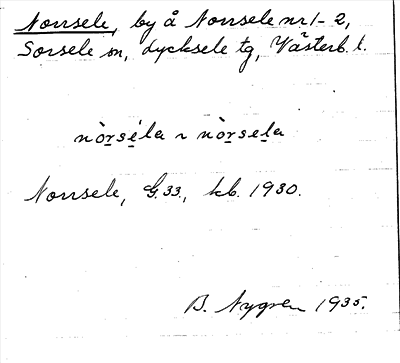 Norrsele, by å Norrsele nr 1-2,
Sorsele sn, Lycksele tg, Västerb. l.
nòrséla ~ nòrsela
Norrsele, G.33., kb. 1930.
B. Nygren 1935.